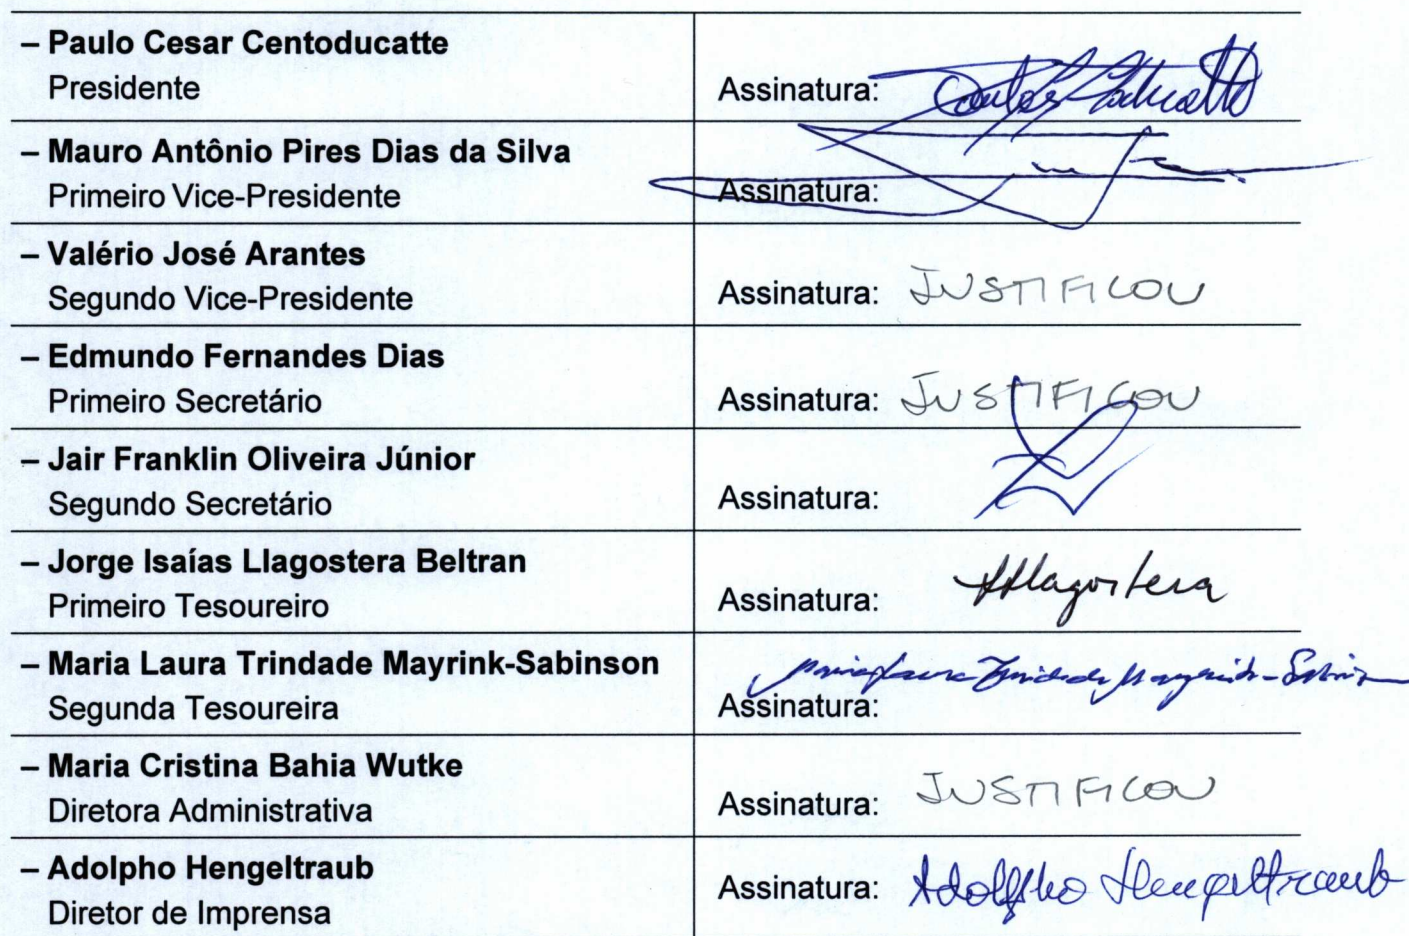 – Paulo Cesar Centoducatte
Presidente
Assinatura:
– Mauro Antônio Pires Dias da Silva
Primeiro Vice-Presidente
Assinatura:
– Valério José Arantes
Segundo Vice-Presidente
Assinatura: JUSTIFICOU
– Edmundo Fernandes Dias
Primeiro Secretário
Assinatura: JUSTIFICOU
– Jair Franklin Oliveira Júnior
Segundo Secretário
Assinatura:
– Jorge Isaías Llagostera Beltran
Primeiro Tesoureiro
Assinatura: Llagostera
– Maria Laura Trindade Mayrink-Sabinson
Segunda Tesoureira
Maria Laura Trindade Mayrink-Sabinson
Assinatura:
– Maria Cristina Bahia Wutke
Diretora Administrativa
Assinatura: JUSTIFICOU
– Adolpho Hengeltraub
Diretor de Imprensa
Assinatura: Adolpho Hengeltraub